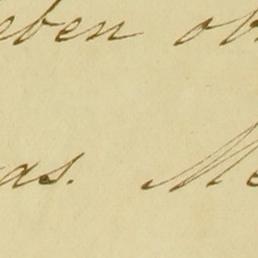 eben ob
as. Me